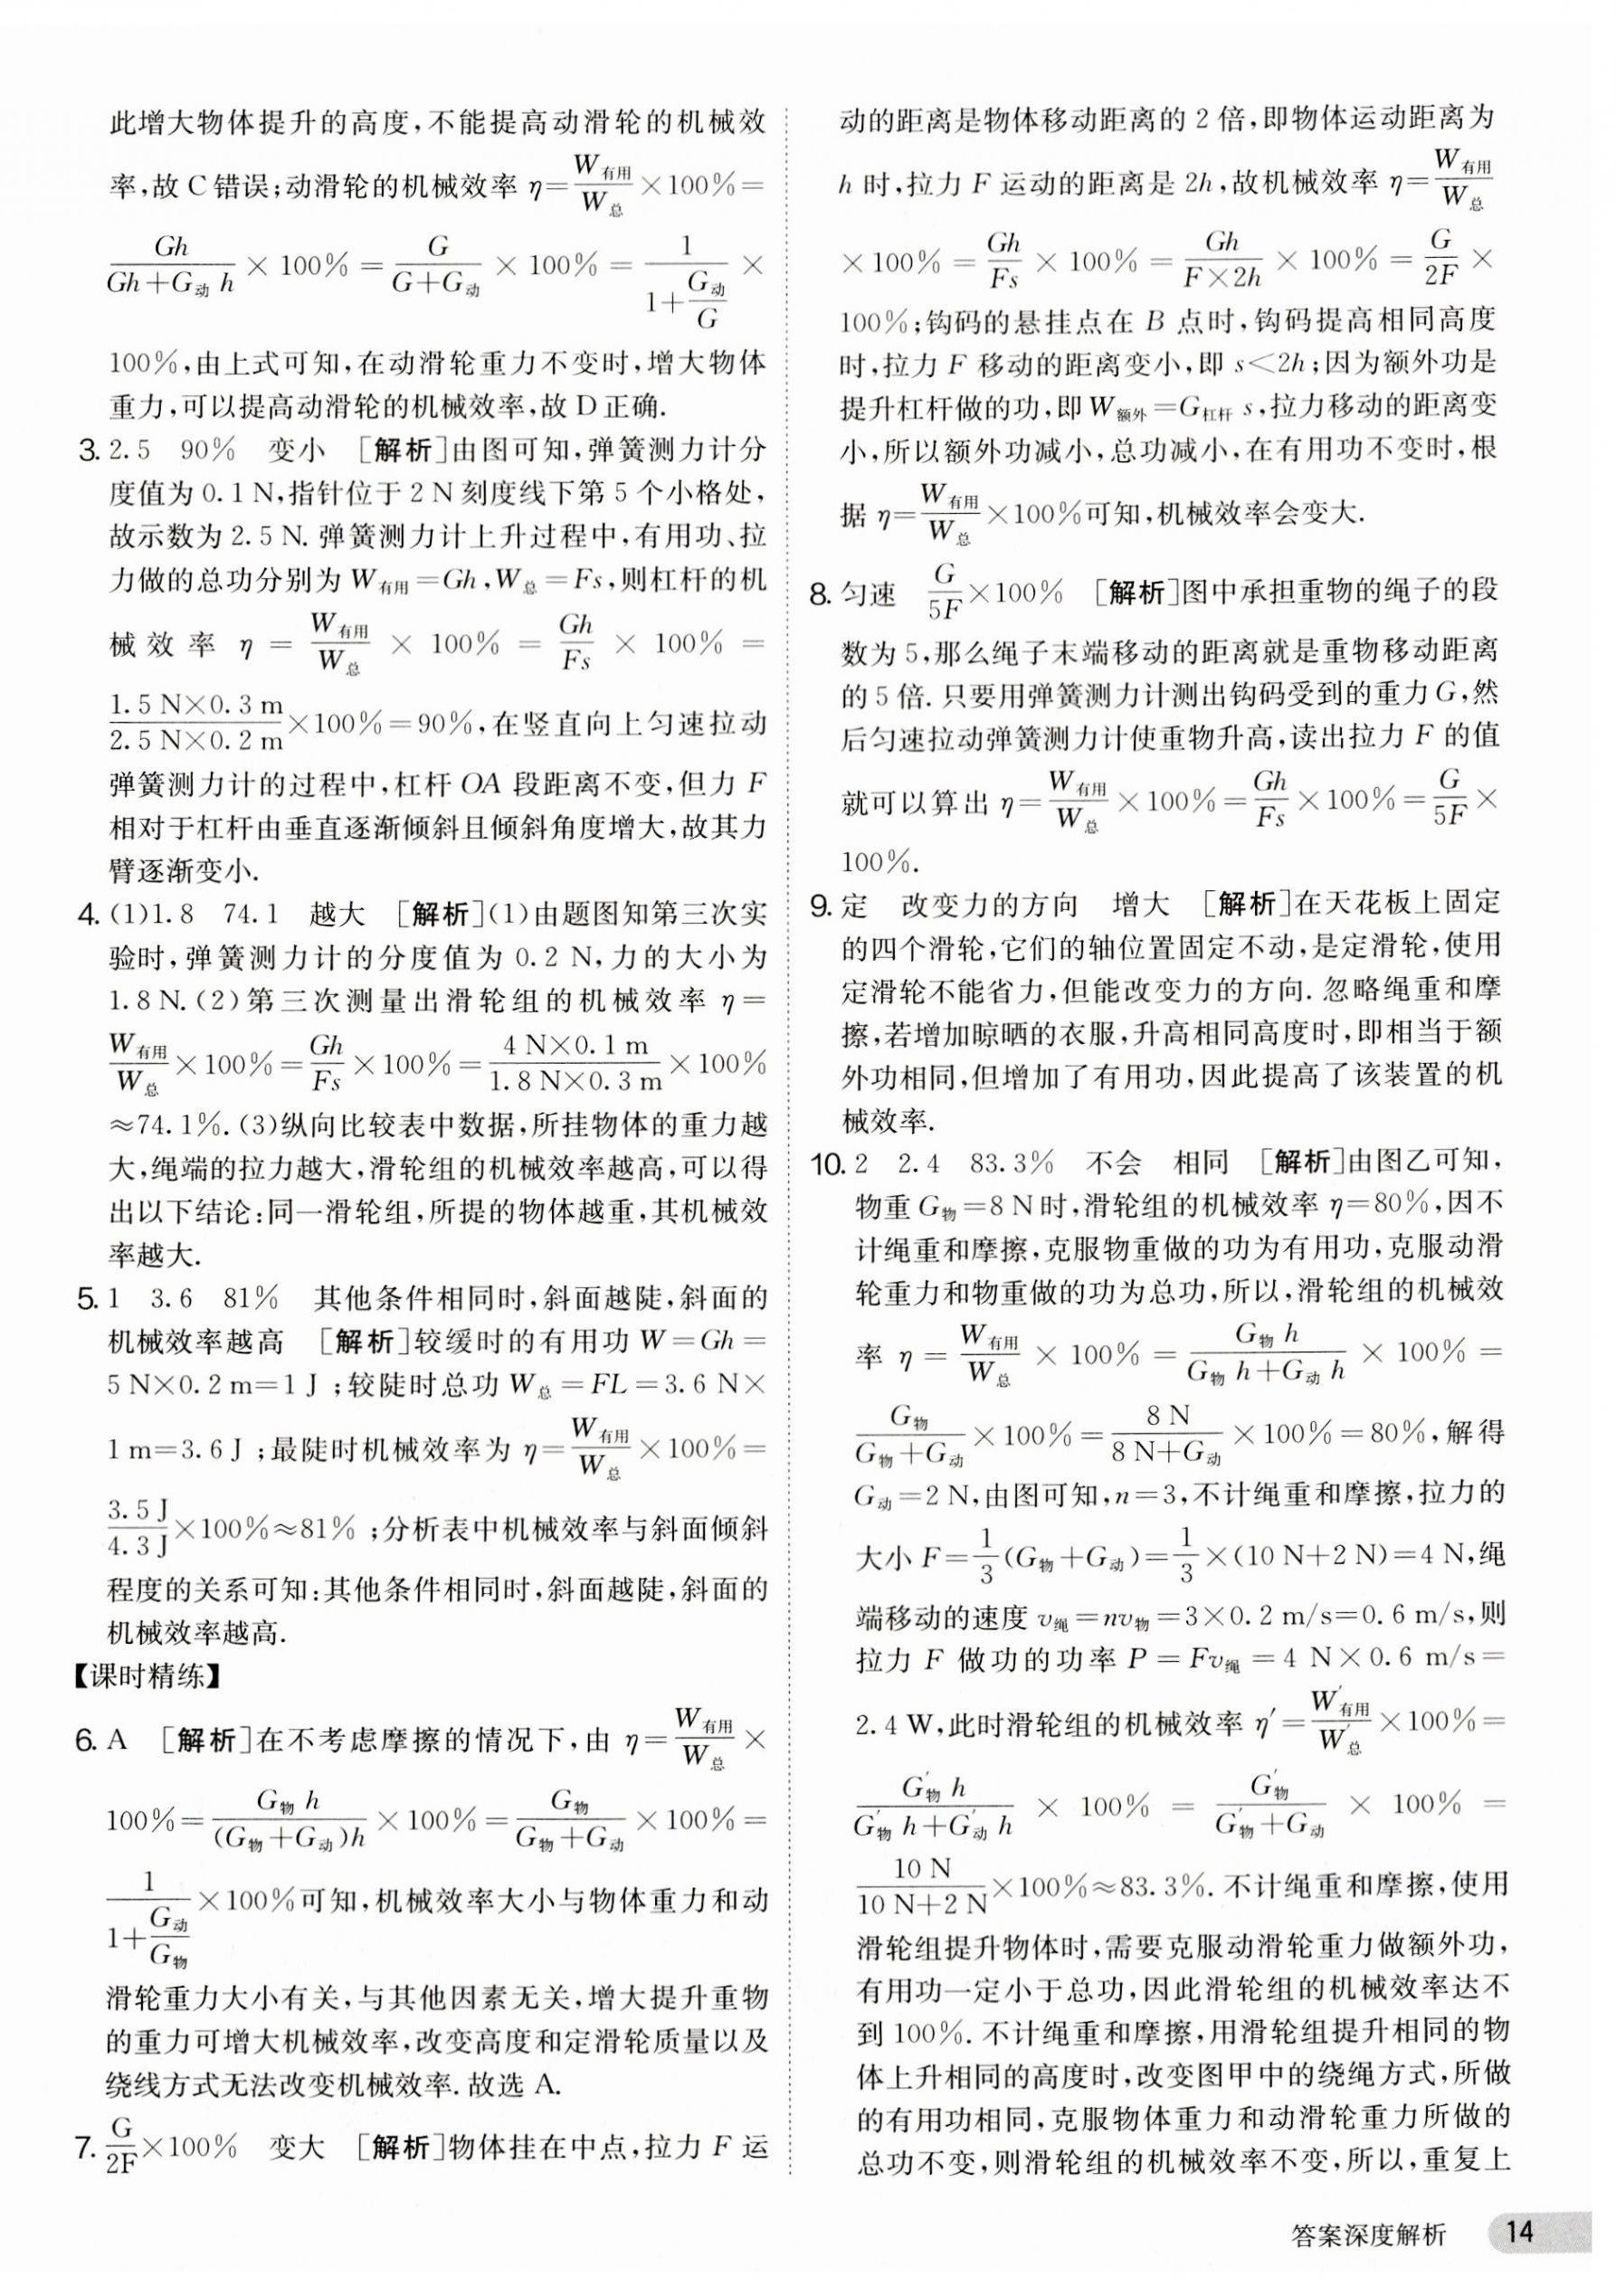 此增大物体提升的高度,不能提高动滑轮的机械效
率,故 C 错误;动滑轮的机械效率 η=W有用/W总×100%=
Gh/(Gh+G动 h) × 100% = G/(G+G动) × 100% = 1/(1+G动/G) ×
100%,由上式可知,在动滑轮重力不变时,增大物体
重力,可以提高动滑轮的机械效率,故 D 正确.
3. 2.5 90% 变小 [解析]由图可知,弹簧测力计分
度值为 0.1 N,指针位于 2 N 刻度线下第 5 个小格处,
故示数为 2.5 N. 弹簧测力计上升过程中,有用功、拉
力做的总功分别为 W有用=Gh,W总=Fs,则杠杆的机
械效率 η = W有用/W总 × 100% = Gh/Fs × 100% =
(1.5 N×0.3 m)/(2.5 N×0.2 m)×100%=90%,在竖直向上匀速拉动
弹簧测力计的过程中,杠杆 OA 段距离不变,但力 F
相对于杠杆由垂直逐渐倾斜且倾斜角度增大,故其力
臂逐渐变小.
4. (1)1.8 74.1 越大 [解析](1)由题图知第三次实
验时,弹簧测力计的分度值为 0.2 N,力的大小为
1.8 N.(2)第三次测量出滑轮组的机械效率 η=
W有用/W总×100%=Gh/Fs×100%=(4 N×0.1 m)/(1.8 N×0.3 m)×100%
≈74.1%.(3)纵向比较表中数据,所挂物体的重力越
大,绳端的拉力越大,滑轮组的机械效率越高,可以得
出以下结论:同一滑轮组,所提的物体越重,其机械效
率越大.
5. 1 3.6 81% 其他条件相同时,斜面越陡,斜面的
机械效率越高 [解析]较缓时的有用功 W=Gh=
5 N×0.2 m=1 J ;较陡时总功 W总=FL=3.6 N×
1 m=3.6 J ;最陡时机械效率为 η=W有用/W总×100%=
3.5 J/4.3 J×100%≈81% ;分析表中机械效率与斜面倾斜
程度的关系可知:其他条件相同时,斜面越陡,斜面的
机械效率越高.
【课时精练】
6. A [解析]在不考虑摩擦的情况下,由 η=W有用/W总×
100%=G物 h/((G物+G动)h)×100%=G物/(G物+G动)×100%=
1/(1+G动/G物)×100%可知,机械效率大小与物体重力和动
滑轮重力大小有关,与其他因素无关,增大提升重物
的重力可增大机械效率,改变高度和定滑轮质量以及
绕线方式无法改变机械效率.故选 A.
7. G/2F×100% 变大 [解析]物体挂在中点,拉力 F 运
动的距离是物体移动距离的 2 倍,即物体运动距离为
h 时,拉力 F 运动的距离是 2h,故机械效率 η=W有用/W总
×100% = Gh/Fs × 100% = Gh/(F×2h) × 100% = G/2F ×
100%;钩码的悬挂点在 B 点时,钩码提高相同高度
时,拉力 F 移动的距离变小,即 s<2h;因为额外功是
提升杠杆做的功,即 W额外=G杠杆 s,拉力移动的距离变
小,所以额外功减小,总功减小,在有用功不变时,根
据 η=W有用/W总×100%可知,机械效率会变大.
8. 匀速 G/5F×100% [解析]图中承担重物的绳子的段
数为 5,那么绳子末端移动的距离就是重物移动距离
的 5 倍.只要用弹簧测力计测出钩码受到的重力 G,然
后匀速拉动弹簧测力计使重物升高,读出拉力 F 的值
就可以算出 η=W有用/W总×100%=Gh/Fs×100%=G/5F×
100%.
9. 定 改变力的方向 增大 [解析]在天花板上固定
的四个滑轮,它们的轴位置固定不动,是定滑轮,使用
定滑轮不能省力,但能改变力的方向.忽略绳重和摩
擦,若增加晾晒的衣服,升高相同高度时,即相当于额
外功相同,但增加了有用功,因此提高了该装置的机
械效率.
10. 2 2.4 83.3% 不会 相同 [解析]由图乙可知,
物重 G物=8 N 时,滑轮组的机械效率 η=80%,因不
计绳重和摩擦,克服物重做的功为有用功,克服动滑
轮重力和物重做的功为总功,所以,滑轮组的机械效
率 η = W有用/W总 × 100% = G物 h/(G物 h+G动 h) × 100% =
G物/(G物+G动)×100%=8 N/(8 N+G动)×100%=80%,解得
G动=2 N,由图可知,n=3,不计绳重和摩擦,拉力的
大小 F=1/3(G物+G动)=1/3×(10 N+2 N)=4 N,绳
端移动的速度 v绳=nv物=3×0.2 m/s=0.6 m/s,则
拉力 F 做功的功率 P=Fv绳=4 N×0.6 m/s=
2.4 W,此时滑轮组的机械效率 η′=W′有用/W′总×100%=
G′物 h/(G′物 h+G′动 h) × 100% = G′物/(G′物+G动) × 100% =
10 N/(10 N+2 N)×100%≈83.3%.不计绳重和摩擦,使用
滑轮组提升物体时,需要克服动滑轮重力做额外功,
有用功一定小于总功,因此滑轮组的机械效率达不
到 100%.不计绳重和摩擦,用滑轮组提升相同的物
体上升相同的高度时,改变图甲中的绕绳方式,所做
的有用功相同,克服物体重力和动滑轮重力所做的
总功不变,则滑轮组的机械效率不变,所以,重复上
答案深度解析 14